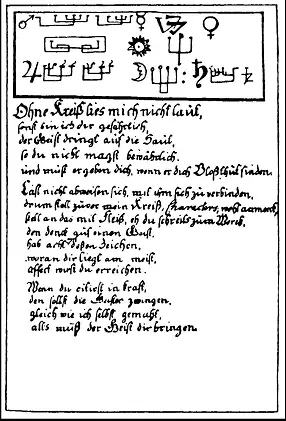 Ohne Kreiß lies mich nicht laut,
sonst bin ich dir gefährlich,
der Geist dringt auf die Haut,
so du nicht magst bewährlich.
und muß er geben dich, wenn er dich
Laß nicht abweisen sich, mit ihm sich zu verbinden,
drum stell zuvor mein Kreiß, Characters, wohl
stell an das mit Fleiß, eh du schreits zum Werck,
den denck auf einen Geist,
hab acht deßen Zeichen,
woran dir liegt am meist,
Effect wirst du erreichen.
Wann du citirst in kraft,
den sollst die Geister zwingen,
gleich wie ich selbst gemacht,
alls muß der Geist dir bringen.